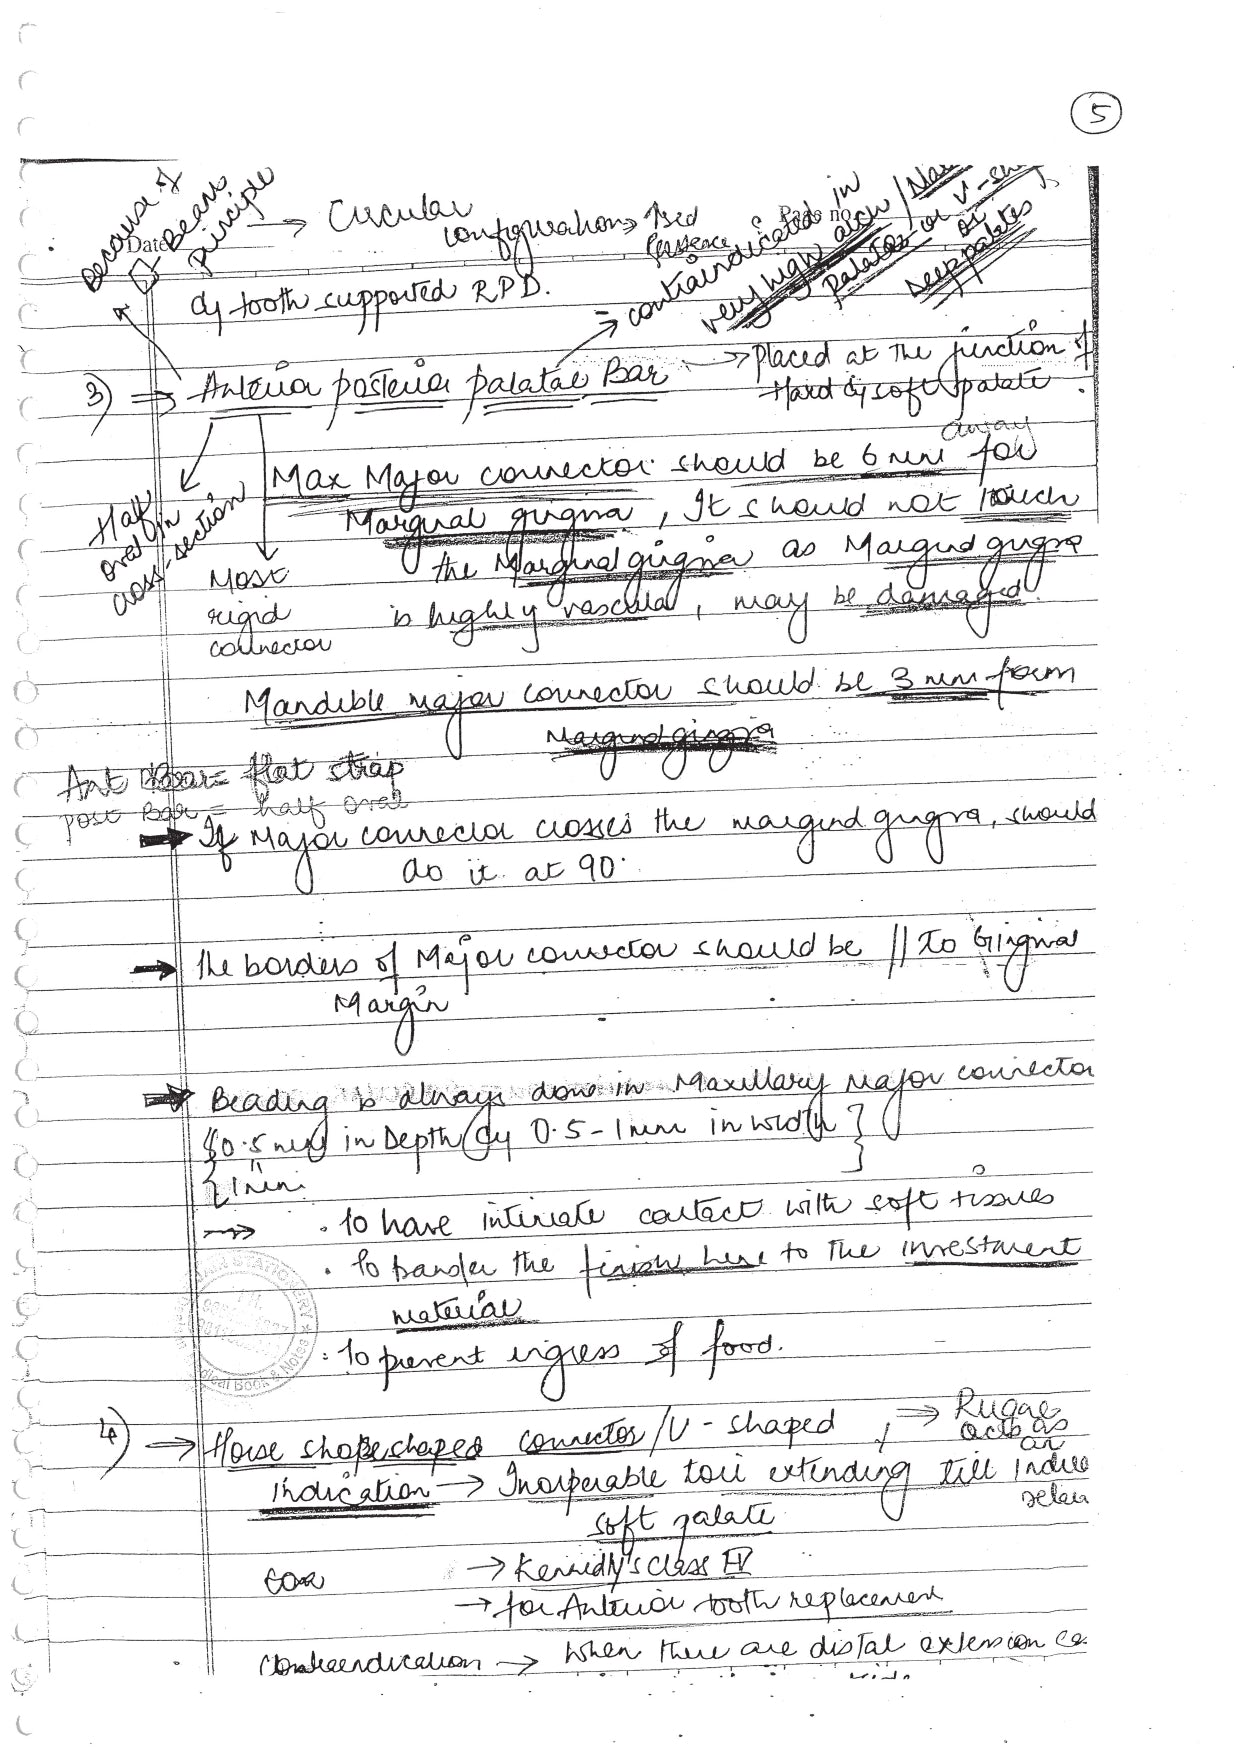 5
Because of
L Beam
Principle
Date
Page no
→ Circular
configuration → Bed
Presence
contraindicated in
very high arch / Na
palates or V-sh
or
deep palates
of tooth supported RPD.
3) ⇒ Anterior posterior palatal Bar → Placed at the junction of
Hard & soft palate.
away
Max Major connector should be 6 mm for
Marginal gingiva, It should not touch
Half
oval in
cross-section
Most
rigid
connector
the Marginal gingiva as Marginal gingiva
is highly vascular, may be damaged.
Mandible major connector should be 3 mm form
Marginal gingiva
Ant Bar = flat strap
post Bar = half oval
→ If Major connector crosses the marginal gingiva, should
do it at 90°
→ The borders of Major connector should be // to Gingival
Margin
→ Beading is always done in Maxillary Major connector
{0.5 mm in Depth & 0.5 - 1 mm in width}
{1mm
→ . To have intimate contact with soft tissues
. To transfer the finish line to the investment
material
: To prevent ingress of food.
4) → Horse shoe shaped connector / U - shaped , → Rugae
acts as
an
indire
retain
indication → Inoperable torii extending till
soft palate
→ Kennedy's class IV
→ for Anterior tooth replacement
Contraendication → When there are distal extension ca.